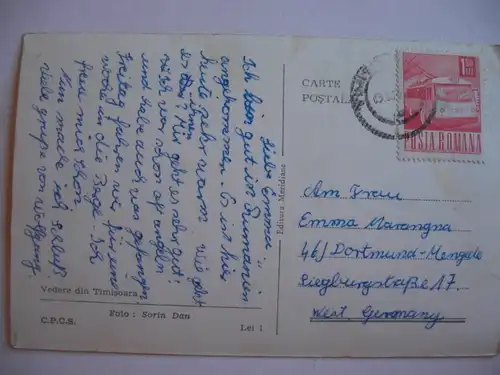 Liebe Emma!
Ich bin gut in Rumänien
angekommen. Es ist hier
heute sehr warm. Wie geht
es ihnen? Mir geht es sehr gut!
War schon oft angeln
und habe auch was gefangen.
Freitag fahren wir für eine
Woche in die Berge. Ich
freue mich schon.
Nun mache ich Schluß.
viele grüße von Wolfgang
Vedere din Timișoara
C.P.C.S.
Foto : Sorin Dan
Lei 1
Editura Meridiane
CARTE
POȘTALĂ
1,50
LEI
POSTA ROMANA
Am Frau
Emma Marangna
46/Dortmund-Mengede
Sieglburgstraße 17.
West. Germany